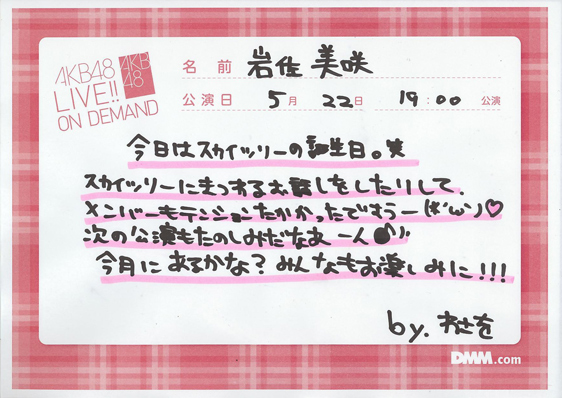 AKB48
LIVE!!
ON DEMAND
AKB
48
名前 岩佐美咲
公演日 5月 22日 19:00 公演
今日はスカイツリーの誕生日。笑
スカイツリーにまつわるお話しをしたりして、
メンバーもテンションたかかったですうー(*'ω')♡
次の公演もたのしみだなあー
今月にあるかな?みんなもお楽しみに!!!
by. わさを
DMM.com